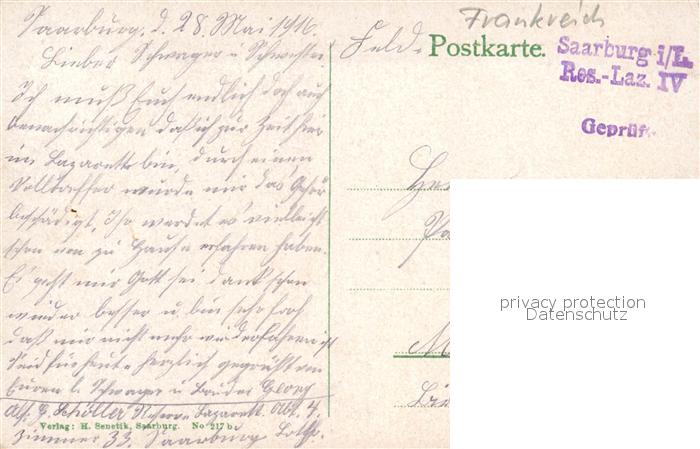 Frankreich
Saarburg, d. 28. Mai 1916.
Lieber Schwager u. Schwester
Feld- Postkarte.
Saarburg i/L.
Res.-Laz. IV
Geprüft.
Ich muß Euch endlich doch auch
benachrichtigen daß ich zur Zeit hier
im Lazarette bin, durch einen
Volltreffer wurde mir das Gehör
beschädigt, Ihr werdet es vielleicht
schon von zu Hause erfahren haben.
Es geht mir Gott sei dank schon
wieder besser u. bin sehr froh
daß mir nicht mehr wiederfahren ist
Seid für heute herzlich gegrüßt von
Euren l. Schwager u. Bruder Georg
Abs. G. Schöller Reserve Lazarett. Abt. 4.
Verlag: H. Senetik, Saarburg. No 217 b.
Zimmer 33. Saarburg Lothr.
privacy protection
Datenschutz